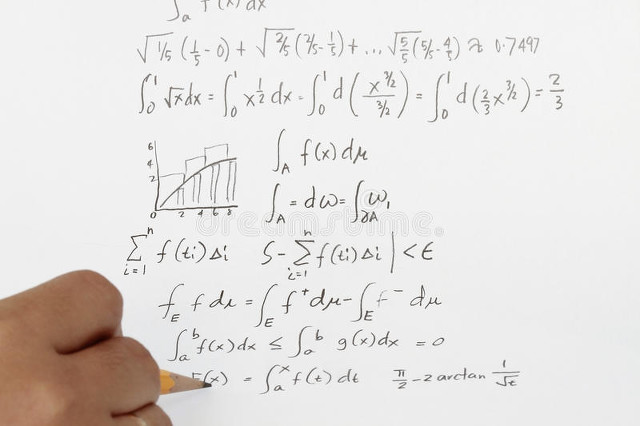 ∫ₐ f(x) dx
√1/5 (1/5 - 0) + √2/5 (2/5 - 1/5) + ... √5/5 (5/5 - 4/5) ≈ 0.7497
∫₀¹ √x dx = ∫₀¹ x^½ dx = ∫₀¹ d (x^3/2 / 3/2) = ∫₀¹ d (2/3 x^3/2) = 2/3
6
4
2
0 2 4 6 8
∫_A f(x) dμ
∫_A = dω = ∫_∂A ω₁
dreamstime
∑ⁿ_{i=1} f(ti) Δi   S - ∑ⁿ_{i=1} f(ti) Δi | < ε
∫_E f dμ = ∫_E f⁺ dμ - ∫_E f⁻ dμ
∫ₐᵇ f(x) dx ≤ ∫ₐᵇ g(x) dx = 0
F(x) = ∫ₐˣ f(t) dt   π/2 - 2 arctan 1/√t